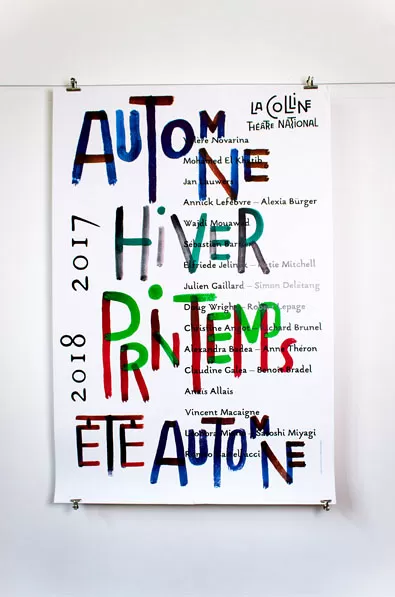 LA COLLINE
THÉÂTRE NATIONAL
AUTOM
NE
HIVER
PRINTEMPS
ÉTÉ AUTOMNE
2017
2018
Valère Novarina
Mohamed El Khatib
Jan Lauwers
Annick Lefebvre – Alexia Bürger
Wajdi Mouawad
Sébastien
Elfriede Jelinek – Katie Mitchell
Julien Gaillard – Simon Delétang
Doug Wright – Robert Lepage
Christine Angot – Richard Brunel
Alexandra Badea – Anne Théron
Claudine Galea – Benoit Bradel
Anaïs Allais
Vincent Macaigne
Léonora Miano – Satoshi Miyagi
Romeo Castellucci